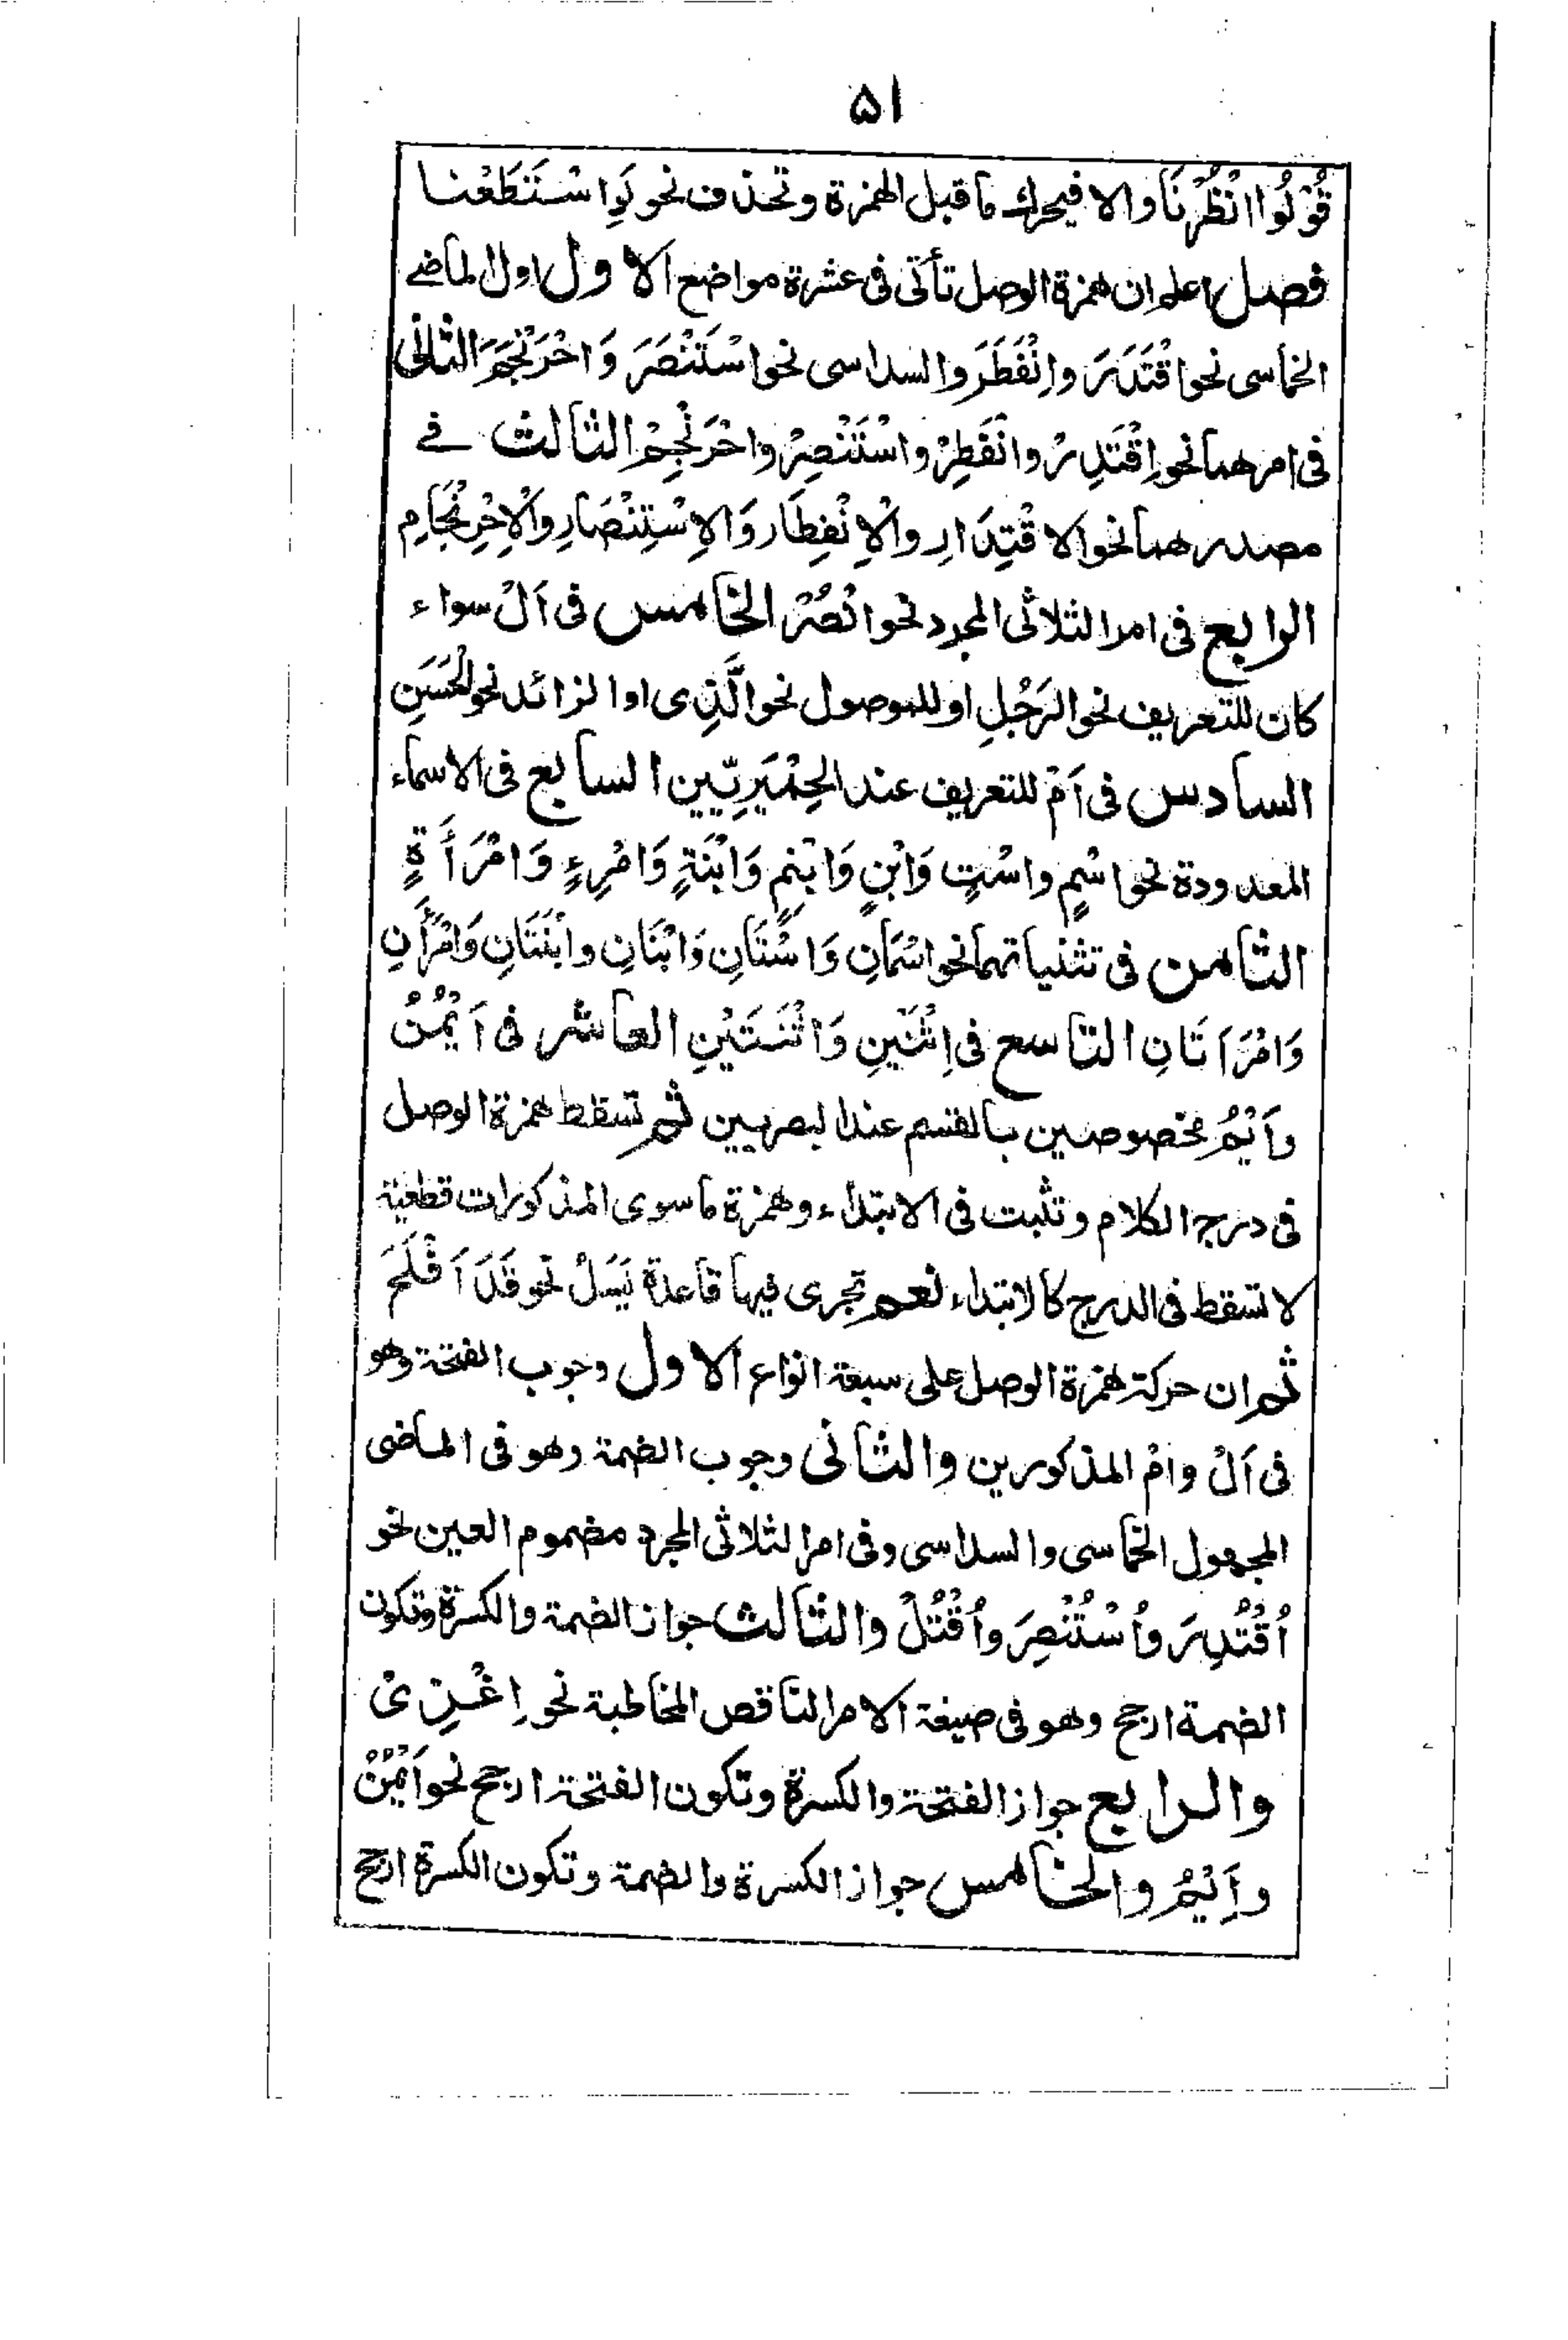 ۵۱
قُوْلُوا انْظُرْنَا والا فيحرك ما قبل الهمزة وتحذف نحو لَوِاسْتَطَعْنا
فصل اعلم ان همزة الوصل تأتى فى عشرة مواضع الاول اول الماضے
الخماسى نحو اقْتَدَرَ وانْفَطَرَ والسداسى نحو اسْتَنْصَرَ وَاحْرَنْجَمَ الثانى
فى امرهما نحو اِقْتَدِرْ وانْفَطِرْ واسْتَنْصِرْ واحْرَنْجِمْ الثالث فے
مصدرهما نحو الاقْتِدَارِ والْاِنْفِطَار وَالاِسْتِنْصَارِ والْاِحْرِنْجَامِ
الرابع فى امر الثلاثى المجرد نحو انْصُرْ الخامس فى اَلْ سواء
كان للتعريف نحو الرَجُلِ او للموصول نحو الَّذِى او الزائد نحو الْحَسَنِ
السادس فى اَمْ للتعريف عند الحِمْيَرِيّين السابع فى الاسماء
المعدودة نحو اسْمٍ واسْتٍ وَابْنٍ وَابْنِمٍ وَابْنَةٍ وَامْرِءٍ وَامْرَأَةٍ
الثامن فى تثنياتهما نحو اسْمَانِ وَاسْتَانِ وَابْنَانِ وابْنَتَانِ وَامْرَأَنِ
وَامْرَاَتَانِ التاسع فى اِثْنَيْنِ وَاثْنَتَيْنِ العاشر فى اَيْمُنُ
واَيْمُ مخصوصين بالقسم عند البصريين ثم تسقط همزة الوصل
فى درج الكلام وتثبت فى الابتداء وهمزة ما سوى المذكورات قطعية
لا تسقط فى الدرج كالابتداء نعم تجرى فيها قاعدة يَسَلُ نحو قَدَ اَفْلَحَ
ثم ان حركة همزة الوصل على سبعة انواع الاول وجوب الفتحة وهو
فى اَلْ وامْ المذكورين والثانى وجوب الضمة وهو فى الماضى
المجهول الخماسى والسداسى وفى امر الثلاثى المجرد مضموم العين نحو
اُقْتُدِرَ واُسْتُنْصِرَ واُقْتُلْ والثالث جواز الضمة والكسرة وتكون
الضمة ارجح وهو فى صيغة الامر الناقص المخاطبة نحو اِغْزِىْ
والرابع جواز الفتحة والكسرة وتكون الفتحة ارجح نحو اَيْمُنُ
واَيْمُ والخامس جواز الكسرة والضمة وتكون الكسرة ارجح